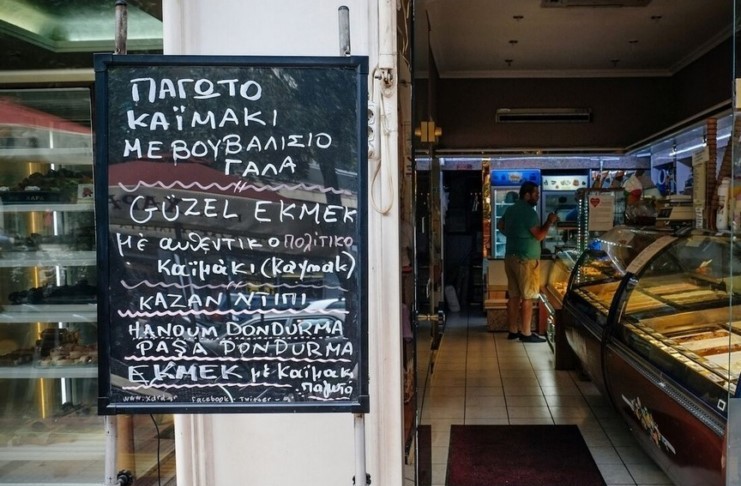 ΠΑΓΩΤΟ
ΚΑΪΜΑΚΙ
ΜΕ ΒΟΥΒΑΛΙΣΙΟ
ΓΑΛΑ
GÜZEL EKMEK
με αυθεντικο πολίτικο
καϊμάκι (kaymak)
ΚΑΖΑΝ ΝΤΙΠΙ
HANOUM DONDURMA
PAŞA DONDURMA
EKMEK με καϊμακ
παγωτό
Facebook - Twitter -